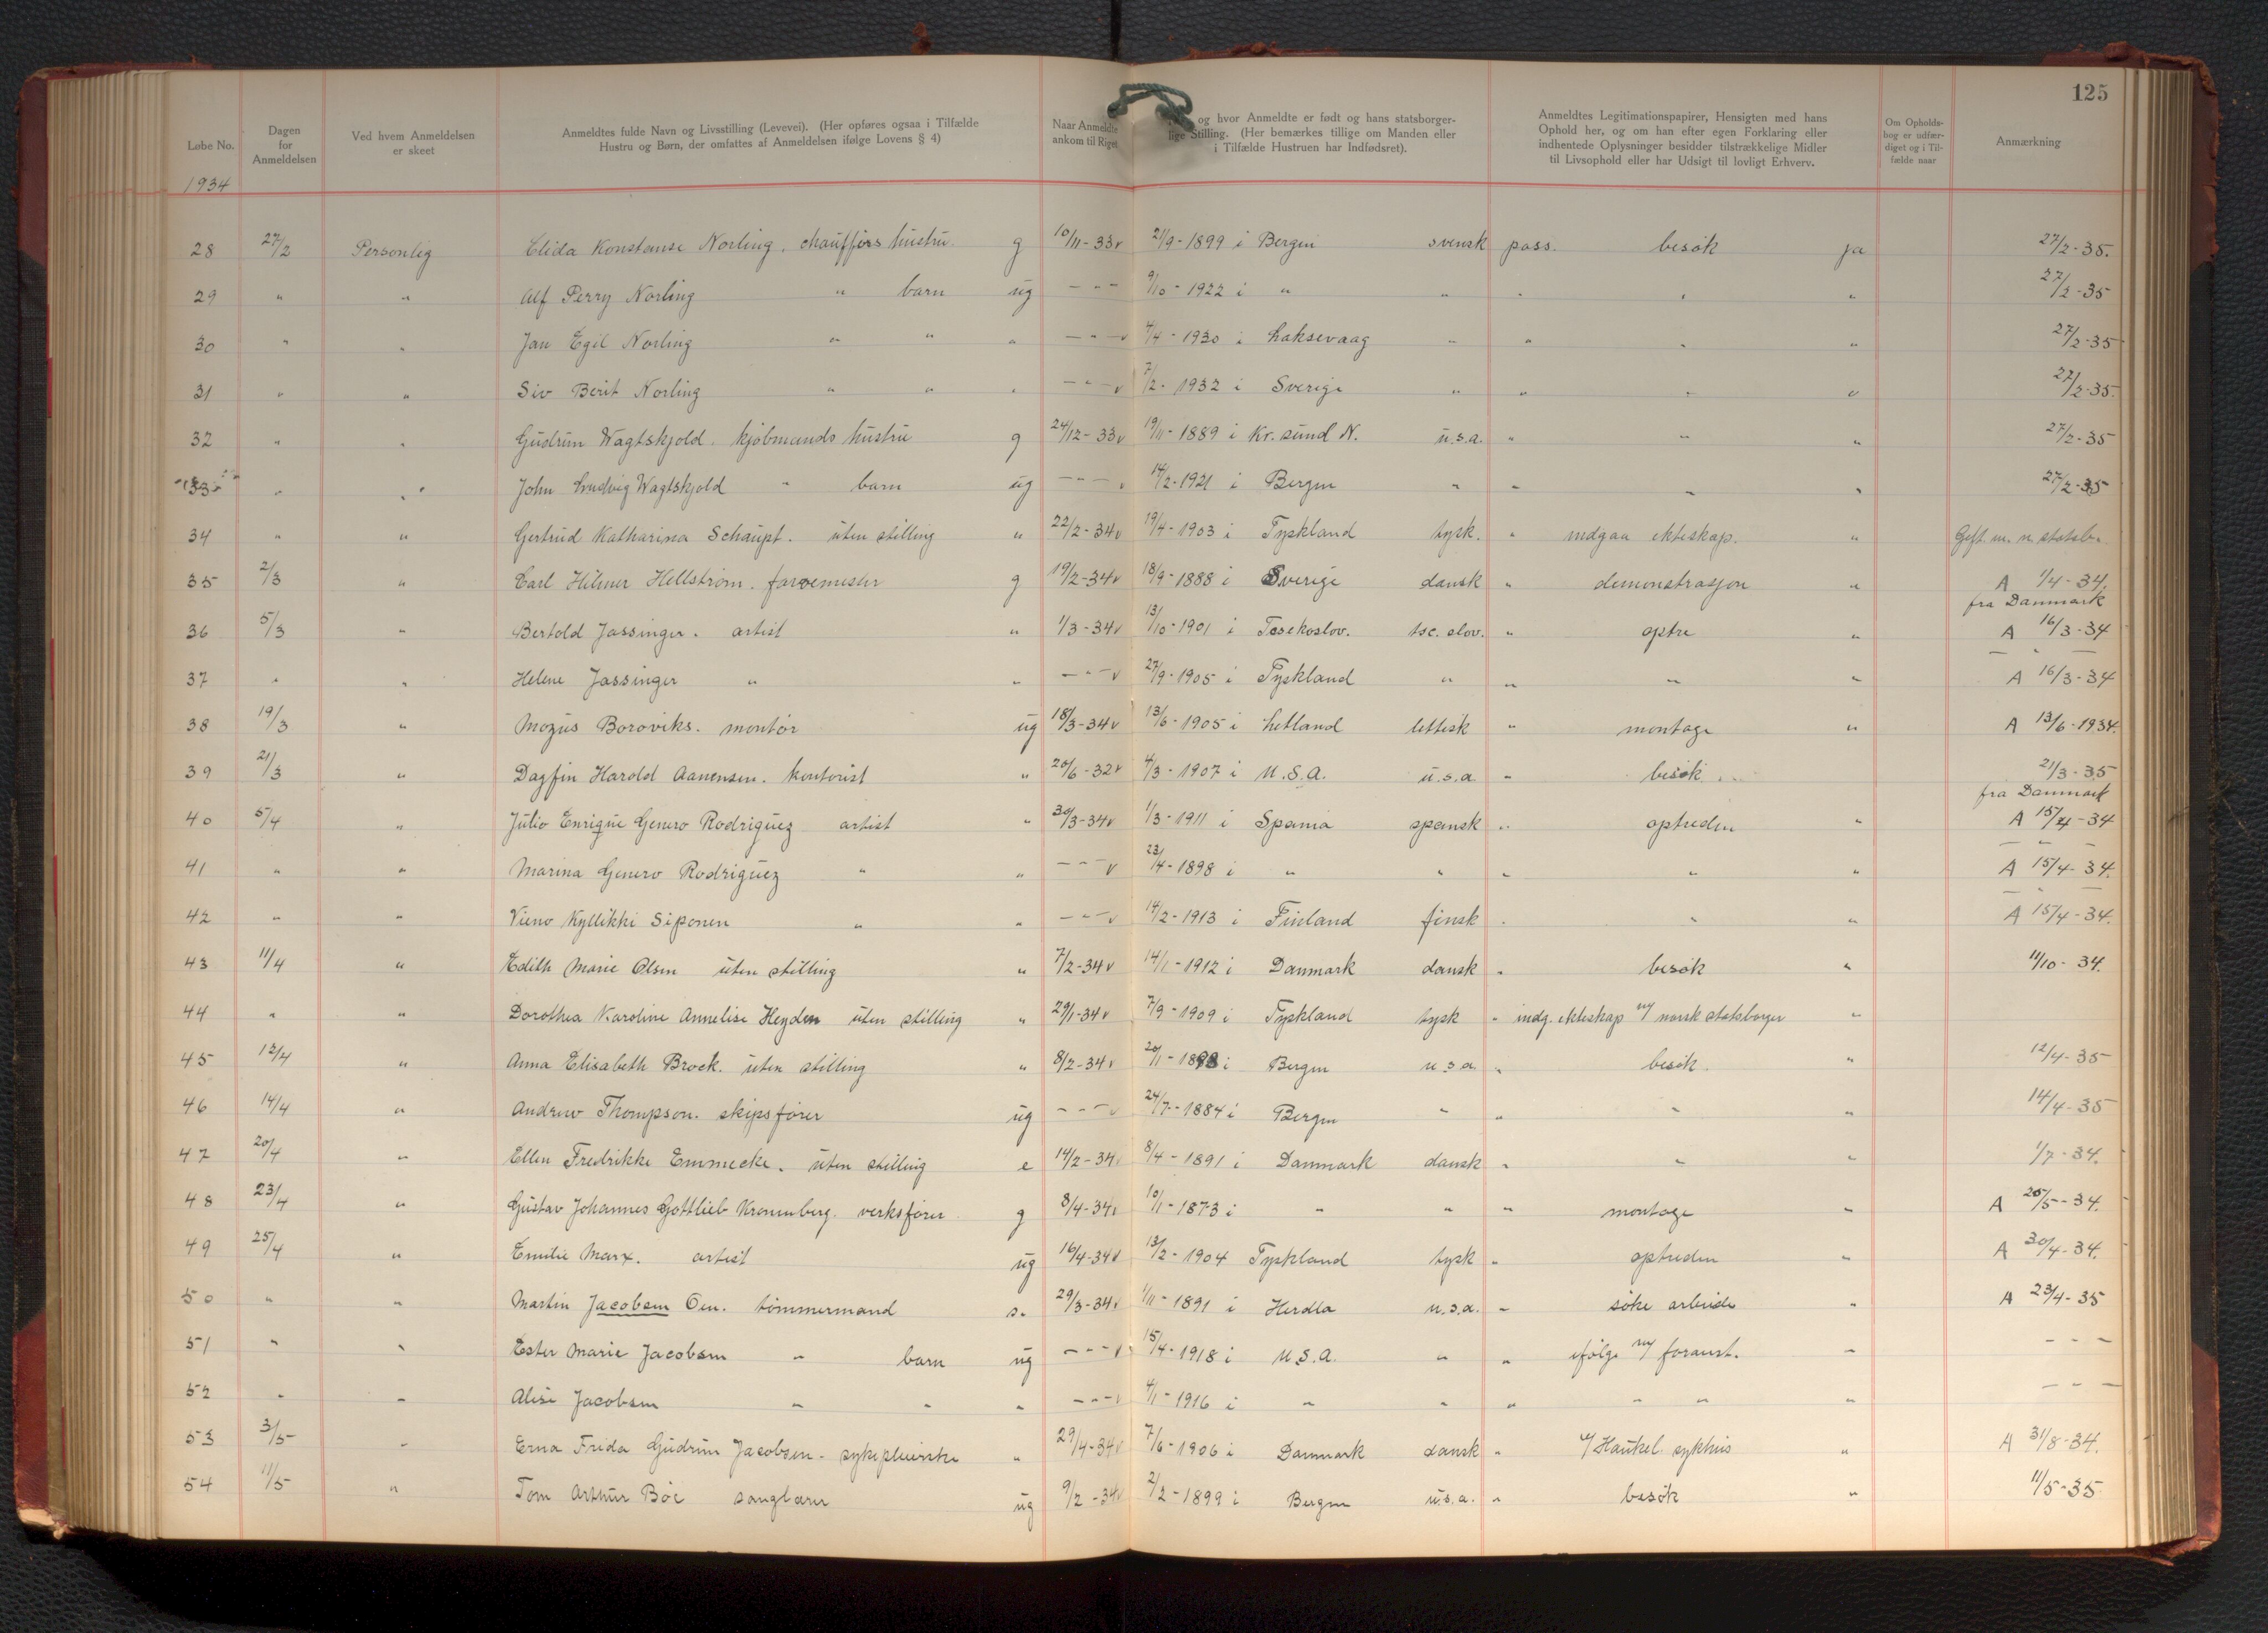 125
Løbe No.
Dagen for Anmeldelsen
Ved hvem Anmeldelsen er skeet
Anmeldtes fulde Navn og Livsstilling (Levevei). (Her opføres ogsaa i Tilfælde Hustru og Børn, der omfattes af Anmeldelsen ifølge Lovens § 4)
Naar Anmeldte ankom til Riget
og hvor Anmeldte er født og hans statsborgerlige Stilling. (Her bemærkes tillige om Manden eller i Tilfælde Hustruen har Indfødsret).
Anmeldtes Legitimationspapirer, Hensigten med hans Ophold her, og om han efter egen Forklaring eller indhentede Oplysninger besidder tilstrækkelige Midler til Livsophold eller har Udsigt til lovligt Erhverv.
Om Opholdsbog er udfærdiget og i Tilfælde naar
Anmærkning
1934
28 27/2 Personlig Elida Konstanse Norling. chaufførs hustru. g 10/11-33 v 21/9-1899 i Bergen svensk pass. besøk ja 27/2-35.
29 " " Alf Perry Norling " barn ug - " - 9/10-1922 i " " " " " 27/2-35
30 " " Jan Egil Norling " " " - " - v 4/4-1930 i Laksevaag " " " " 27/2-35
31 " " Siv Berit Norling " " " - " - v 7/2-1932 i Sverige " " " " 27/2-35.
32 " " Gudrun Wagtskjold. kjøbmands hustru g 24/12-33 v 19/11-1889 i Kr. sund N. u.s.a. " " " 27/2-35
33 " " John Ludvig Wagtskjold " barn ug - " - v 14/2-1921 i Bergen " " " " 27/2-35
34 " " Gertrud Katharina Schaupt. uten stilling " 22/2-34 v 19/4-1903 i Tyskland tysk. " indgaa ekteskap. " Gift m. n. statsb.
35 2/3 " Carl Hilmer Hellstrøm. farvemester g 19/2-34 v 18/9-1888 i Sverige dansk " demonstrasjon " A 1/4-34.
fra Danmark
36 5/3 " Bertold Jassinger. artist " 1/3-34 v 13/10-1901 i Tsekoslov. tsc. slov. " optre " A 16/3-34
- " -
37 " " Helene Jassinger " " - " - v 27/9-1905 i Tyskland " " " " A 16/3-34
38 19/3 " Mozus Boroviks. montør ug 18/3-34 v 13/6-1905 i Letland lettisk " montage " A 13/6-1934.
39 21/3 " Dagfin Harold Aanensen. kontorist " 20/6-32 v 4/3-1907 i U.S.A. u.s.a " besøk 21/3-35
fra Danmark
40 5/4 " Julio Enrique Genero Rodriguez artist " 30/3-34 v 1/3-1911 i Spania spansk " optreden " A 15/4-34
- " -
41 " " Marina Genero Rodriguez " " - " - v 23/4-1898 i " " " " " A 15/4-34.
- " -
42 " " Vieno Kyllikki Siponen " " - " - v 14/2-1913 i Finland finsk " " " A 15/4-34.
43 11/4 " Edith Marie Olsen uten stilling " 7/2-34 v 14/1-1912 i Danmark dansk " besøk " 11/10-34.
44 " " Dorothea Karoline Annelise Heyden uten stilling " 29/1-34 v 7/9-1909 i Tyskland tysk " indg. ekteskap m/ norsk statsborger "
45 12/4 " Anna Elisabeth Brock. uten stilling " 8/2-34 v 20/1-1893 i Bergen u.s.a. " besøk. " 12/4-35
46 14/4 " Andrew Thompson. skipsfører ug - " - v 24/7-1884 i Bergen " " " " 14/4-35
47 20/4 " Ellen Fredrikke Emmecke. uten stilling e 14/2-34 v 8/4-1891 i Danmark dansk " " " 1/7-34.
48 23/4 " Gustav Johannes Gottlieb Kronenberg. verksfører g 8/4-34 v 10/1-1873 i " " " montage " A 25/5-34.
49 25/4 " Emilie Marx. artist ug 16/4-34 v 13/2-1904 Tyskland tysk " optreden " A 30/4-34.
50 " " Martin Jacobsen Oen. tømmermand s. 29/3-34 v 1/11-1891 i Herdla u.s.a. " søke arbeide " A 23/4-35
51 " " Ester Marie Jacobsen " barn ug - " - v 15/4-1918 i U.S.A. " " ifølge m/ foranst. " - " -
52 " " Alise Jacobsen " " " - " - v 4/1-1916 i " " " " " " - " -
53 3/5 " Erna Frida Gudrun Jacobsen - sykepleierske " 29/4-34 v 7/6-1906 i Danmark dansk " v/ Haukel. sykhus " A 31/8-34.
54 11/5 " Tom Arthur Böe sanglærer ug 9/2-34 v 2/2-1899 i Bergen u.s.a. " besøk " 11/5-35